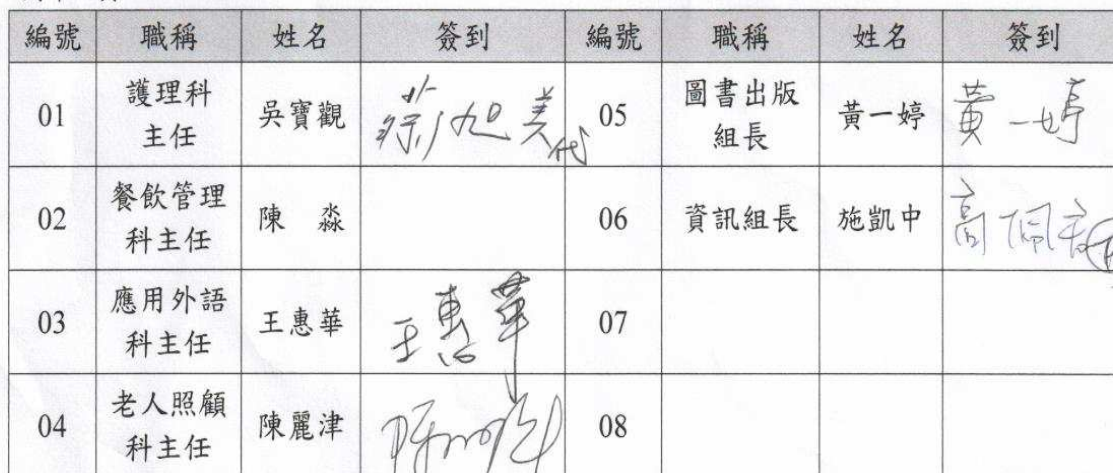 編號 職稱 姓名 簽到 編號 職稱 姓名 簽到
01 護理科主任 吳寶觀 旭美代 05 圖書出版組長 黃一婷 黃一婷
02 餐飲管理科主任 陳 淼 06 資訊組長 施凱中 高佩
03 應用外語科主任 王惠華 王惠華 07
04 老人照顧科主任 陳麗津 08